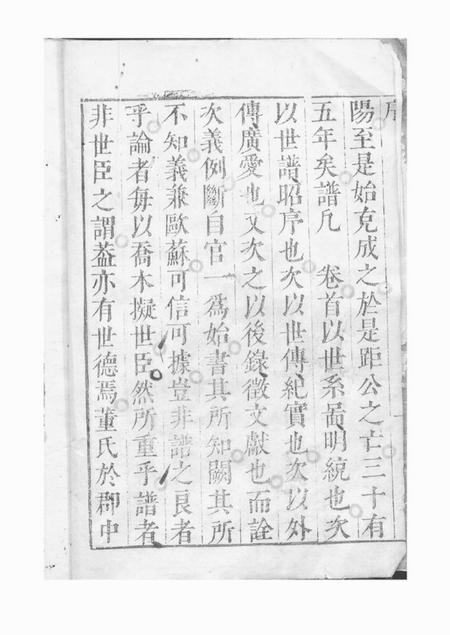 序
陽至是始克成之於是距公之亡三十有
五年矣譜凡 卷首以世系啚明統也次
以世譜昭序也次以世傳紀實也次以外
傳廣愛也又次之以後錄徵文獻也而詮
次義例斷自官 爲始書其所知闕其所
不知義兼歐蘇可信可據豈非譜之良者
乎論者每以喬木擬世臣然所重乎譜者
非世臣之謂葢亦有世德焉董氏於郡中